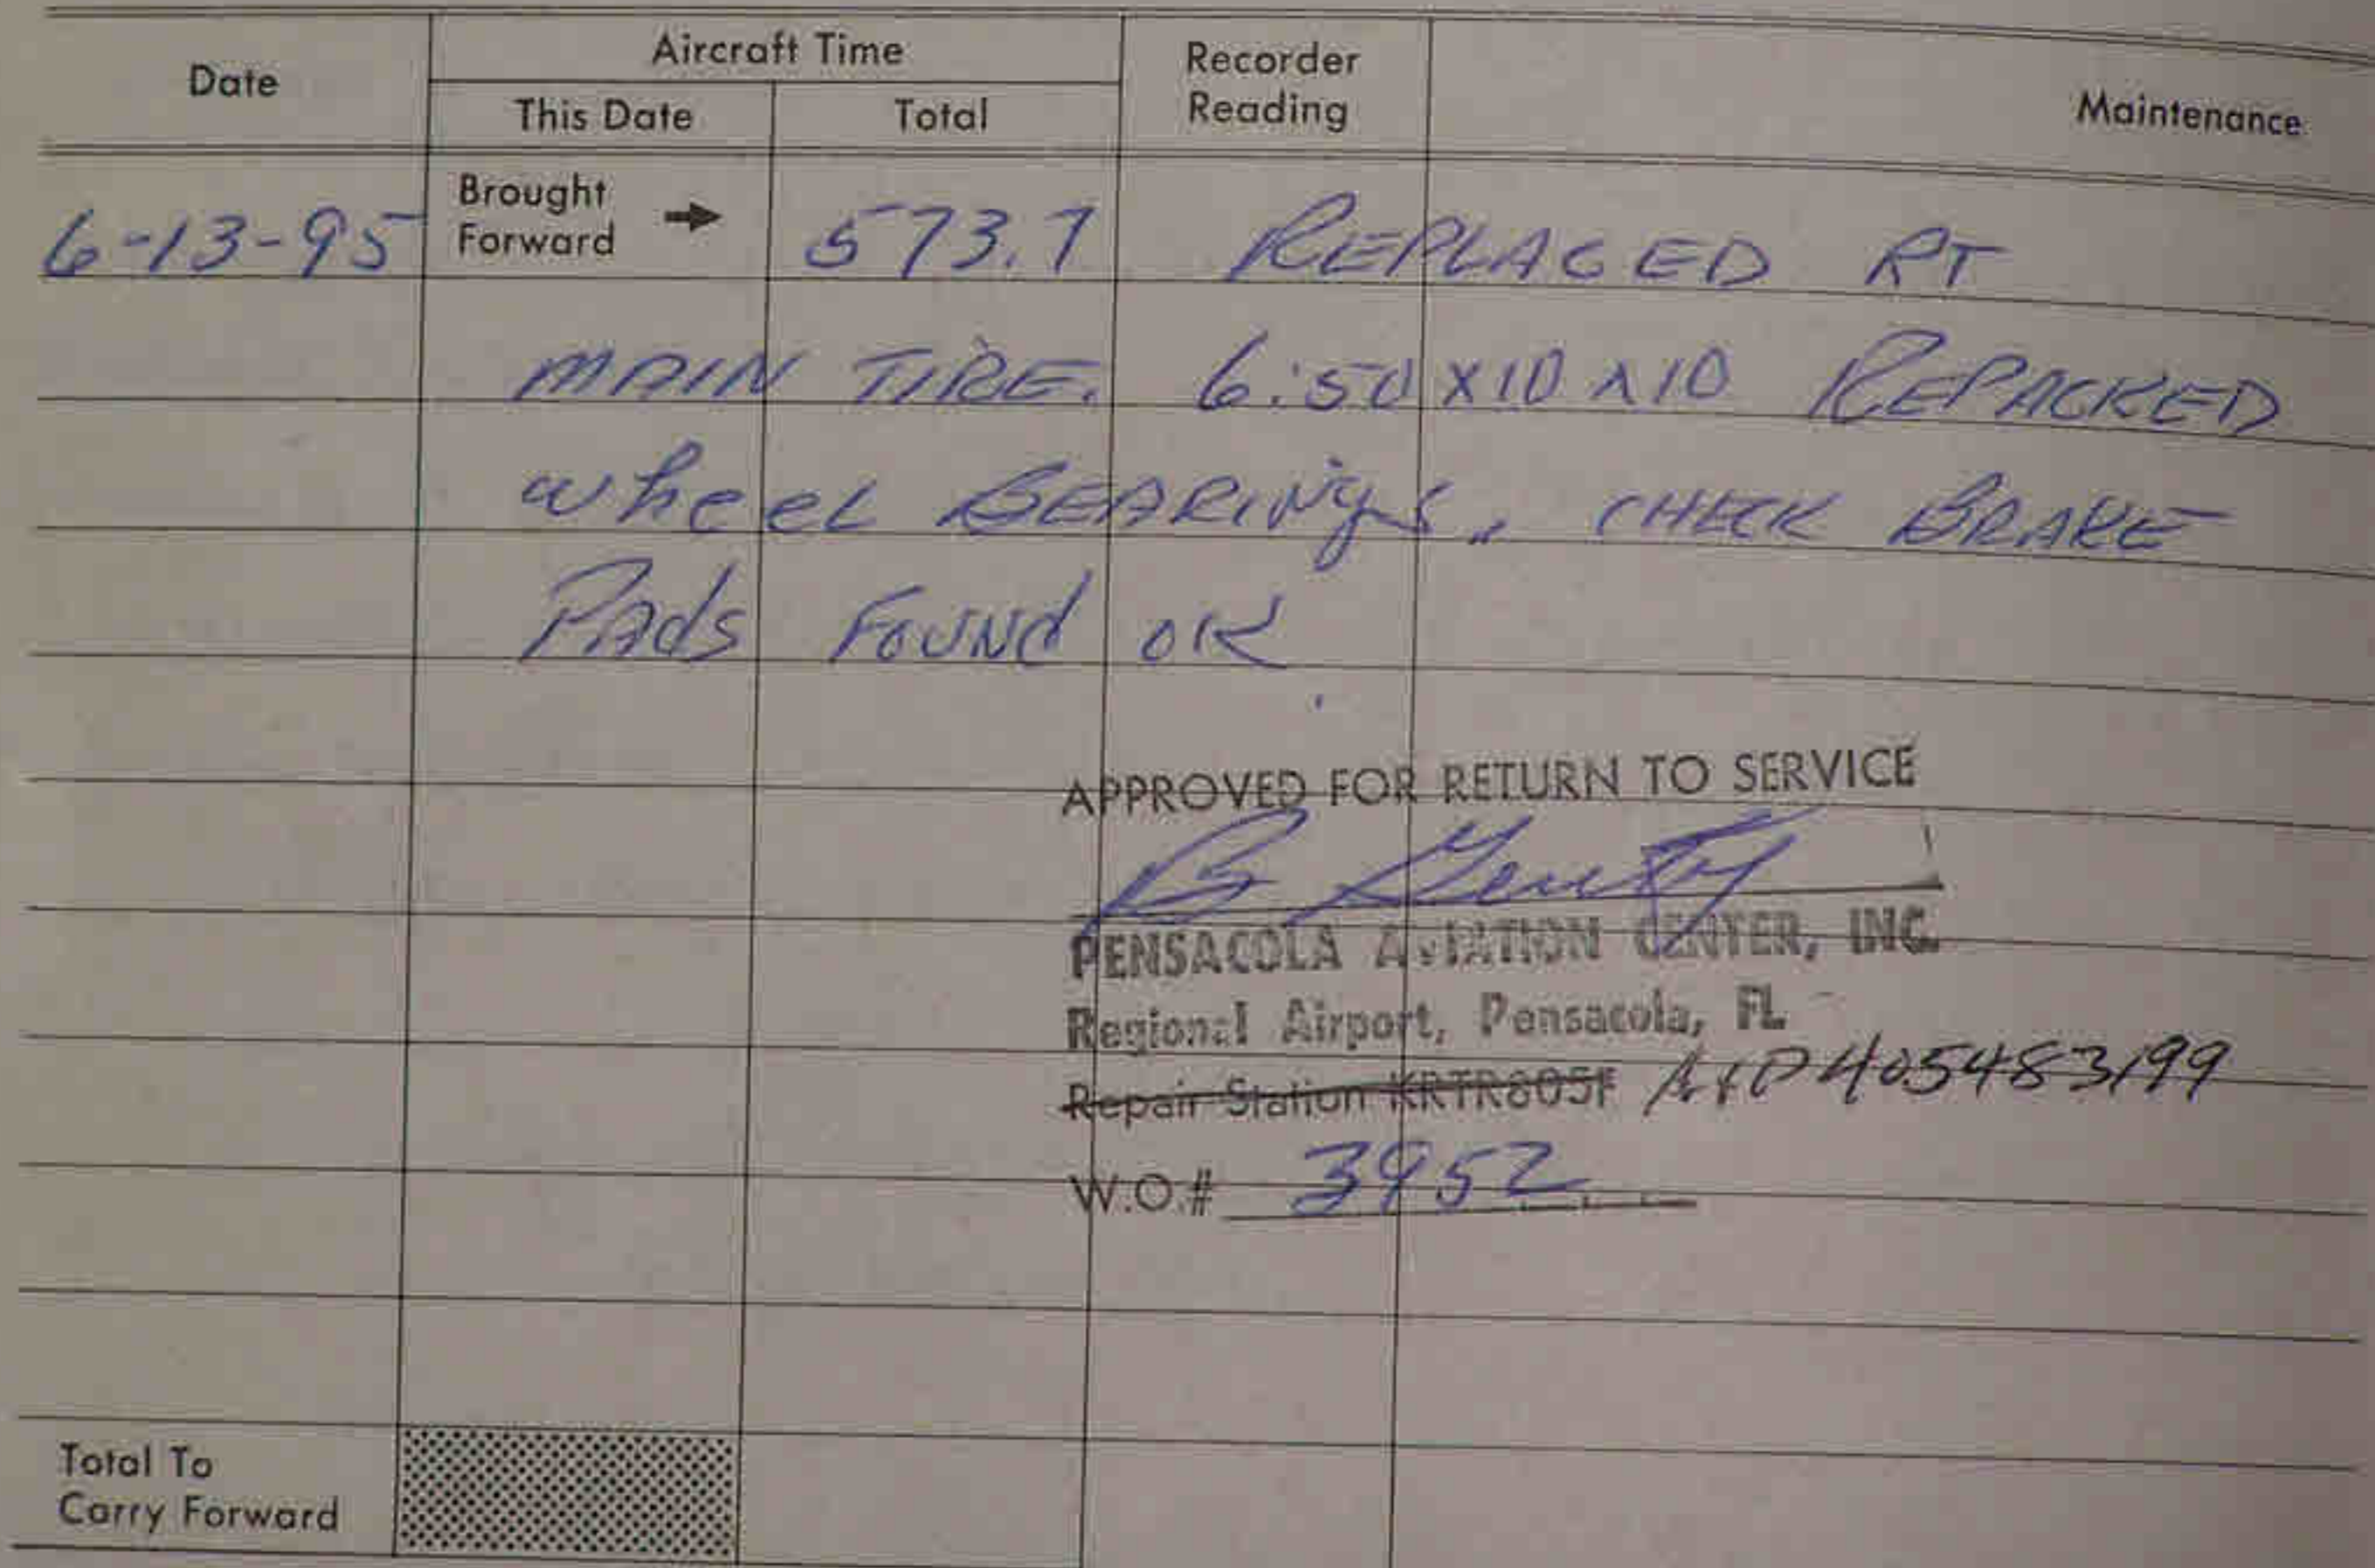 Date
Aircraft Time
This Date
Total
Recorder
Reading
Maintenance
6-13-95 Brought Forward → 573.7 REPLACED RT
MAIN TIRE. 6:50 X 10 X 10 REPACKED
wheel BEARINgs. CHECK BRAKE
PAds FOUNd OK.
APPROVED FOR RETURN TO SERVICE
PENSACOLA AVIATION CENTER, INC.
Regional Airport, Pensacola, FL
Repair Station KRTR805F A&P 405483199
W.O.# 3952
Total To
Carry Forward